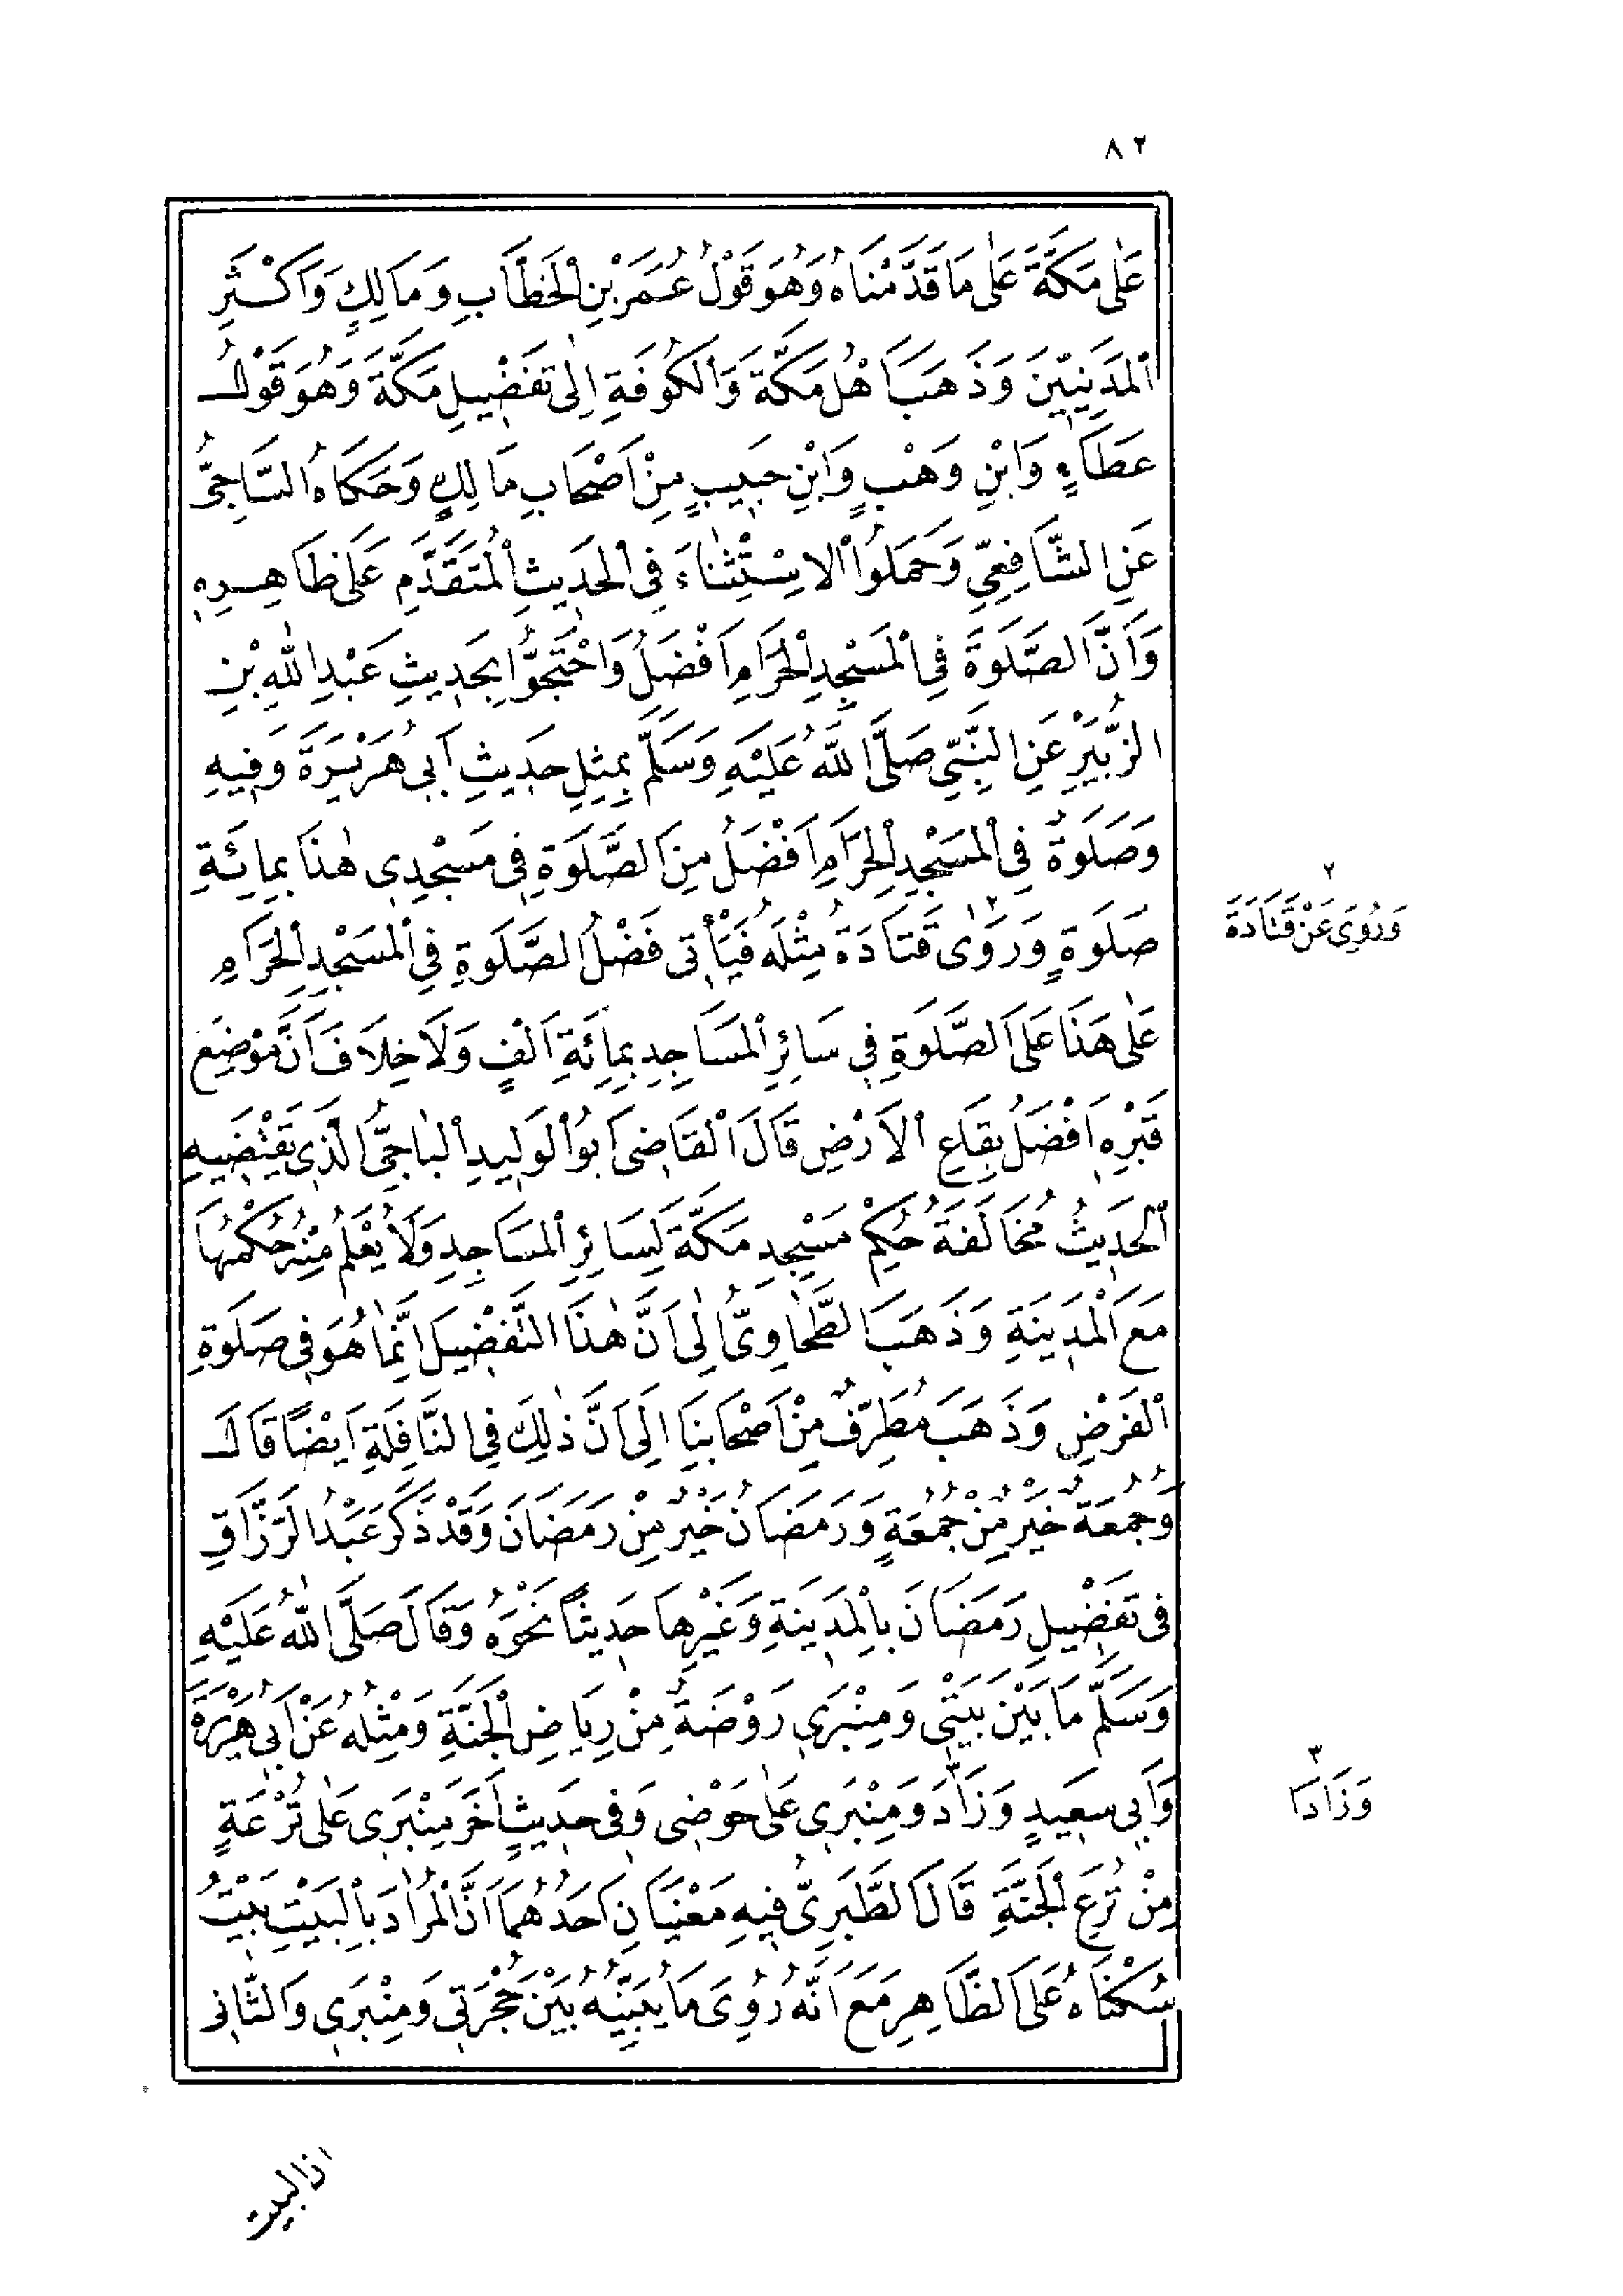 ٨٢
عَلٰى مَكَّةَ عَلٰى مَا قَدَّمْنَاهُ وَهُوَ قَوْلُ عُمَرَ بْنِ الْخَطَّابِ وَمَالِكٍ وَاَكْثَرِ
الْمَدَنِيِّينَ وَذَهَبَ اَهْلُ مَكَّةَ وَالْكُوفَةِ اِلٰى تَفْضِيلِ مَكَّةَ وَهُوَ قَوْلُ
عَطَاءٍ وَابْنِ وَهْبٍ وَابْنِ حَبِيبٍ مِنْ اَصْحَابِ مَالِكٍ وَحَكَاهُ السَّاجِيُّ
عَنِ الشَّافِعِيِّ وَحَمَلُوا الْاِسْتِثْنَاءَ فِى الْحَدِيثِ الْمُتَقَدِّمِ عَلٰى ظَاهِرِهِ
وَاَنَّ الصَّلٰوةَ فِى الْمَسْجِدِ الْحَرَامِ اَفْضَلُ وَاحْتَجُّوا بِحَدِيثِ عَبْدِ اللّٰهِ بْنِ
الزُّبَيْرِ عَنِ النَّبِيِّ صَلَّى اللّٰهُ عَلَيْهِ وَسَلَّمَ بِمِثْلِ حَدِيثِ اَبِى هُرَيْرَةَ وَفِيهِ
وَصَلٰوةٌ فِى الْمَسْجِدِ الْحَرَامِ اَفْضَلُ مِنَ الصَّلٰوةِ فِى مَسْجِدِى هٰذَا بِمِائَةِ
صَلٰوةٍ وَرَوٰى ٢ قَتَادَةُ مِثْلَهُ فَيَأْتِى فَضْلُ الصَّلٰوةِ فِى الْمَسْجِدِ الْحَرَامِ
عَلٰى هٰذَا عَلَى الصَّلٰوةِ فِى سَائِرِ الْمَسَاجِدِ بِمِائَةِ اَلْفٍ وَلَا خِلَافَ اَنَّ مَوْضِعَ
قَبْرِهِ اَفْضَلُ بِقَاعِ الْاَرْضِ قَالَ الْقَاضِى اَبُو الْوَلِيدِ الْبَاجِىُّ الَّذِى يَقْتَضِيهِ
الْحَدِيثُ مُخَالَفَةُ حُكْمِ مَسْجِدِ مَكَّةَ لِسَائِرِ الْمَسَاجِدِ وَلَا يُعْلَمُ مِنْهُ حُكْمُهَا
مَعَ الْمَدِينَةِ وَذَهَبَ الطَّحَاوِىُّ اِلٰى اَنَّ هٰذَا التَّفْضِيلَ اِنَّمَا هُوَ فِى صَلٰوةِ
الْفَرْضِ وَذَهَبَ مُطَرِّفٌ مِنْ اَصْحَابِنَا اِلٰى اَنَّ ذٰلِكَ فِى النَّافِلَةِ اَيْضًا قَالَ
وَجُمُعَةٌ خَيْرٌ مِنْ جُمُعَةٍ وَرَمَضَانُ خَيْرٌ مِنْ رَمَضَانَ وَقَدْ ذَكَرَ عَبْدُ الرَّزَّاقِ
فِى تَفْضِيلِ رَمَضَانَ بِالْمَدِينَةِ وَغَيْرِهَا حَدِيثًا نَحْوَهُ وَقَالَ صَلَّى اللّٰهُ عَلَيْهِ
وَسَلَّمَ مَا بَيْنَ بَيْتِى وَمِنْبَرِى رَوْضَةٌ مِنْ رِيَاضِ الْجَنَّةِ وَمِثْلُهُ عَنْ اَبِى هُرَيْرَةَ
وَاَبِى سَعِيدٍ وَزَادَ ٣ وَمِنْبَرِى عَلٰى حَوْضِى وَفِى حَدِيثٍ اٰخَرَ مِنْبَرِى عَلٰى تُرْعَةٍ
مِنْ تُرَعِ الْجَنَّةِ قَالَ الطَّبَرِىُّ فِيهِ مَعْنَيَانِ اَحَدُهُمَا اَنَّ الْمُرَادَ بِالْبَيْتِ بَيْتُ
سُكْنَاهُ عَلَى الظَّاهِرِ مَعَ اَنَّهُ رُوِىَ مَا يُبَيِّنُهُ بَيْنَ حُجْرَتِى وَمِنْبَرِى وَالثَّانِى
٢
وَرُوِىَ عَنْ قَتَادَةَ
٣
وَزَادَا